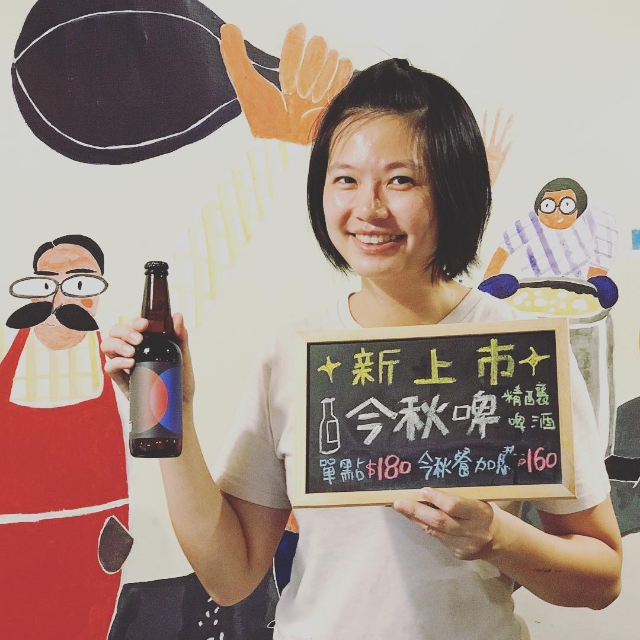 新上市
今秋啤 精釀啤酒
單點$180 今秋餐加購$160